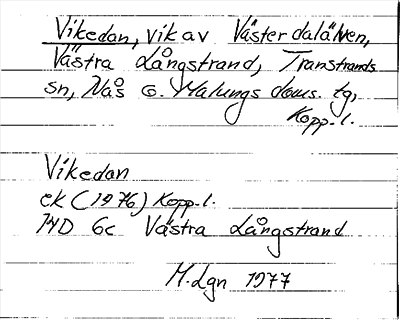 Vikedan, vik av Västerdalälven,
Västra Långstrand, Transtrands
sn, Nås o. Malungs doms. tg,
Kopp. l.
Vikedan
ek (1976) Kopp. l.
14D 6c Västra Långstrand
M. Lgn 1977